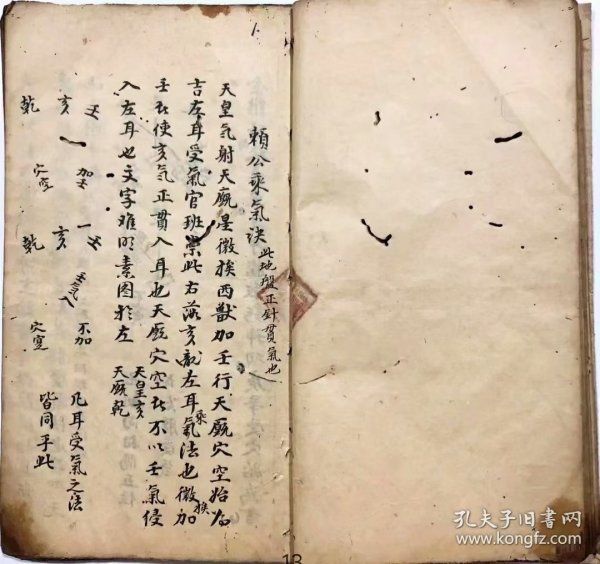 1
賴公乘氣決 此地盤正針貫氣也
天皇氣射天廐星微挨西獸加壬行天廐穴空始為
吉左耳受氣官班崇此右落亥龍左耳乘氣法也微挨加
壬者使亥氣正貫入耳也天廐穴空者不以壬氣侵
入左耳也文字难明素图於左
天皇亥
天廐乾
凡耳受氣之法
皆同乎此
壬
亥
乾
加壬
穴寬
壬
亥
乾
壬氣入
不加
穴寬
18
孔夫子旧书网
www.kongfz.com